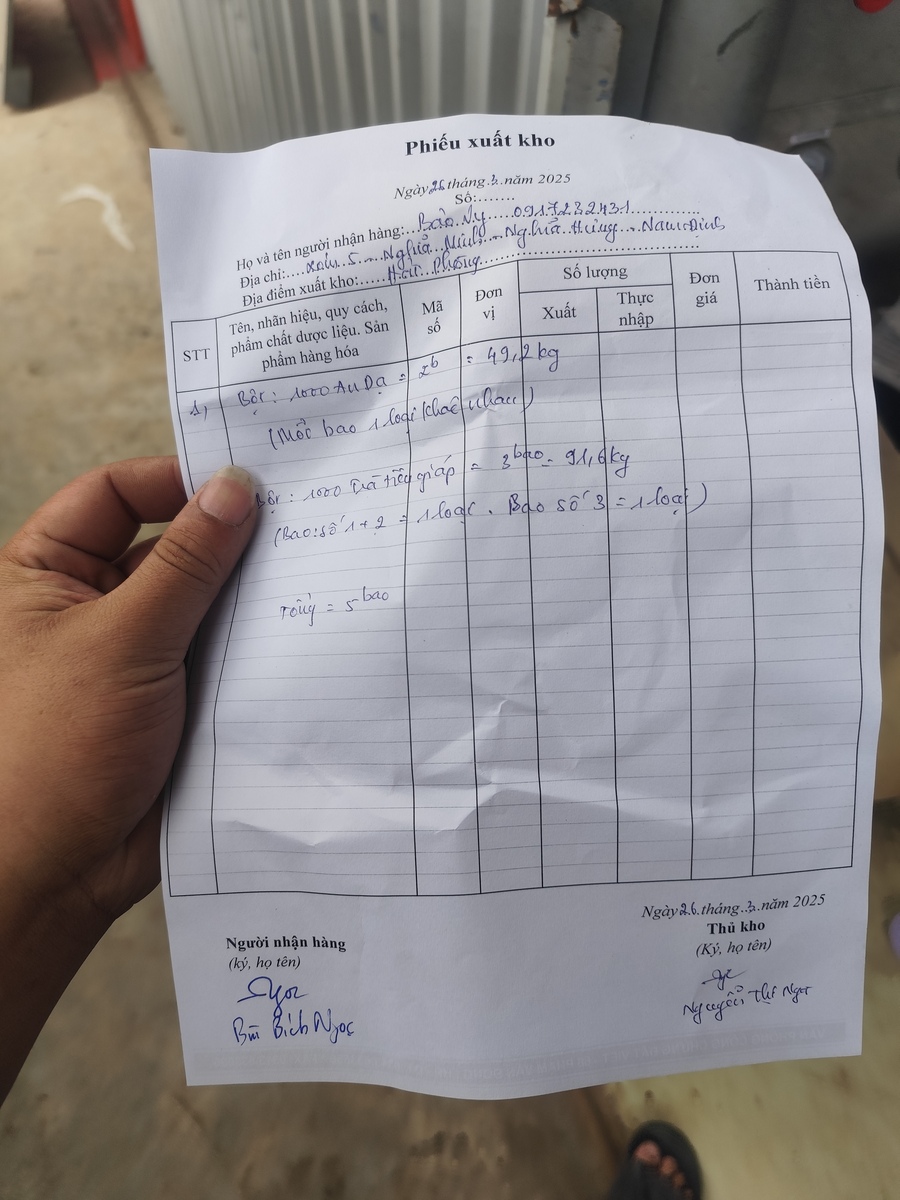 Phiếu xuất kho
Ngày 26 tháng 3 năm 2025
Số:.......
Họ và tên người nhận hàng: Bảo Vy 0917282431
Địa chỉ: xóm 5 Nghĩa Minh, Nghĩa Hưng Nam Định
Địa điểm xuất kho: Hải Phòng
STT
Tên, nhãn hiệu, quy cách, phẩm chất dược liệu. Sản phẩm hàng hóa
Mã số
Đơn vị
Số lượng
Xuất
Thực nhập
Đơn giá
Thành tiền
1, Bột: 1000 Au Dạ = 2b = 49,2 kg
(Mỗi bao 1 loại khác nhau)
Bột: 1000 Trà tiêu giáp = 3 bao = 91,6 kg
(Bao số 1 + 2 = 1 loại. Bao số 3 = 1 loại)
Tổng = 5 bao
Ngày 26 tháng 3 năm 2025
Người nhận hàng
(ký, họ tên)
Ngọc
Bùi Bích Ngọc
Thủ kho
(Ký, họ tên)
Nguyễn Thị Ngọc